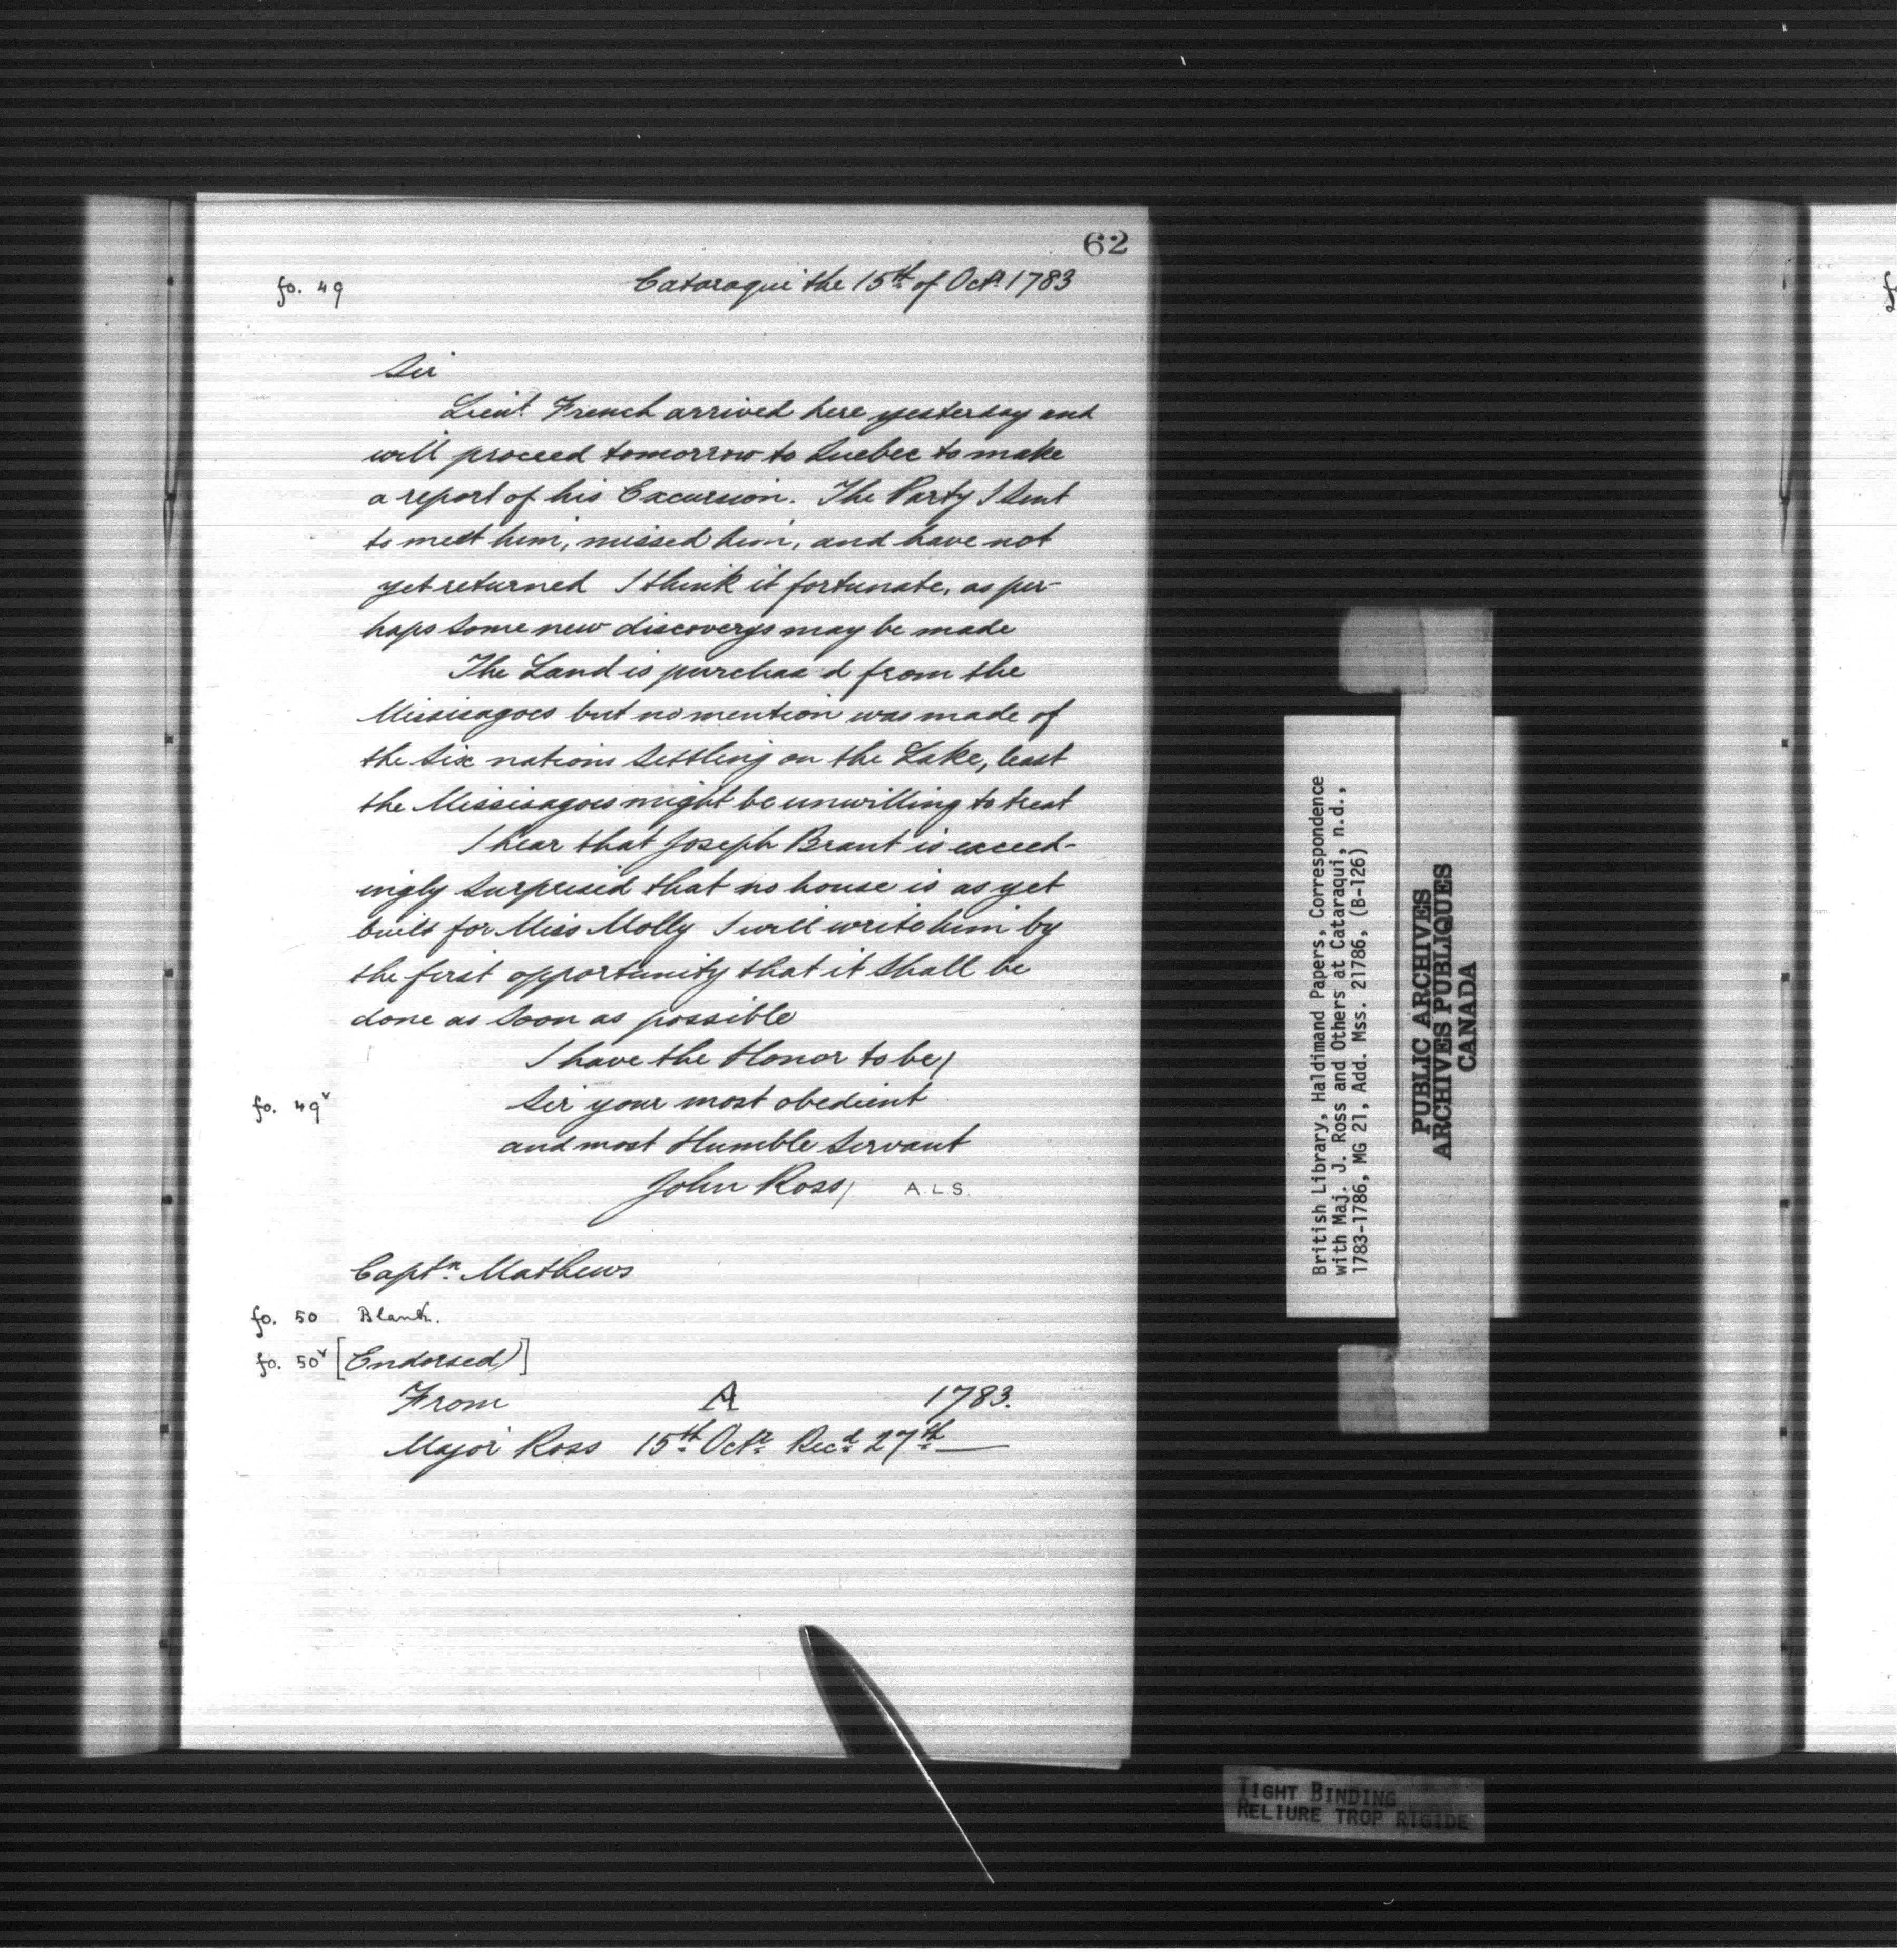 62
fo. 49
Cataraqui the 15th of Octr 1783
Sir
Lieut. French arrived here yesterday and
will proceed tomorrow to Quebec to make
a report of his Excursion. The Party I Sent
to meet him, missed him, and have not
yet returned I think it fortunate, as per-
haps Some new discoverys may be made
The Land is purchas'd from the
Missisagoes but no mention was made of
the Six nations Settling on the Lake, least
the Missisagoes might be unwilling to treat
I hear that Joseph Brant is exceed-
ingly Surprised that no house is as yet
built for Miss Molly I will write him by
the first opportunity that it Shall be
done as Soon as possible
I have the Honor to be/
fo. 49v
Sir your most obedient
and most Humble Servant
John Ross/ A.L.S.
Captn. Mathews
fo. 50 Blank.
fo. 50v [Endorsed)]
From A 1783.
Major Ross 15th Octr Recd 27th —
British Library, Haldimand Papers, Correspondence
with Maj. J. Ross and Others at Cataraqui, n.d.,
1783-1786, MG 21, Add. Mss. 21786, (B-126)
PUBLIC ARCHIVES
ARCHIVES PUBLIQUES
CANADA
TIGHT BINDING
RELIURE TROP RIGIDE